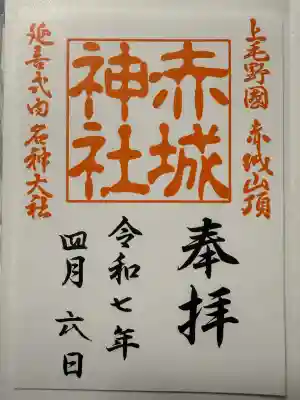 上毛野國 赤城山頂
赤城
神社
延喜式内名神大社
奉拝
令和七年
四月六日